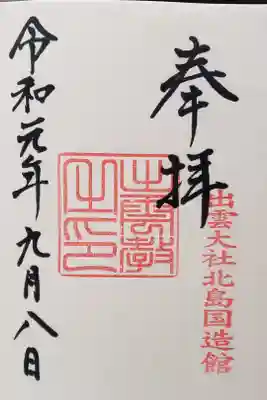 奉拝
出雲大社北島国造館
出雲教之印
令和元年九月八日